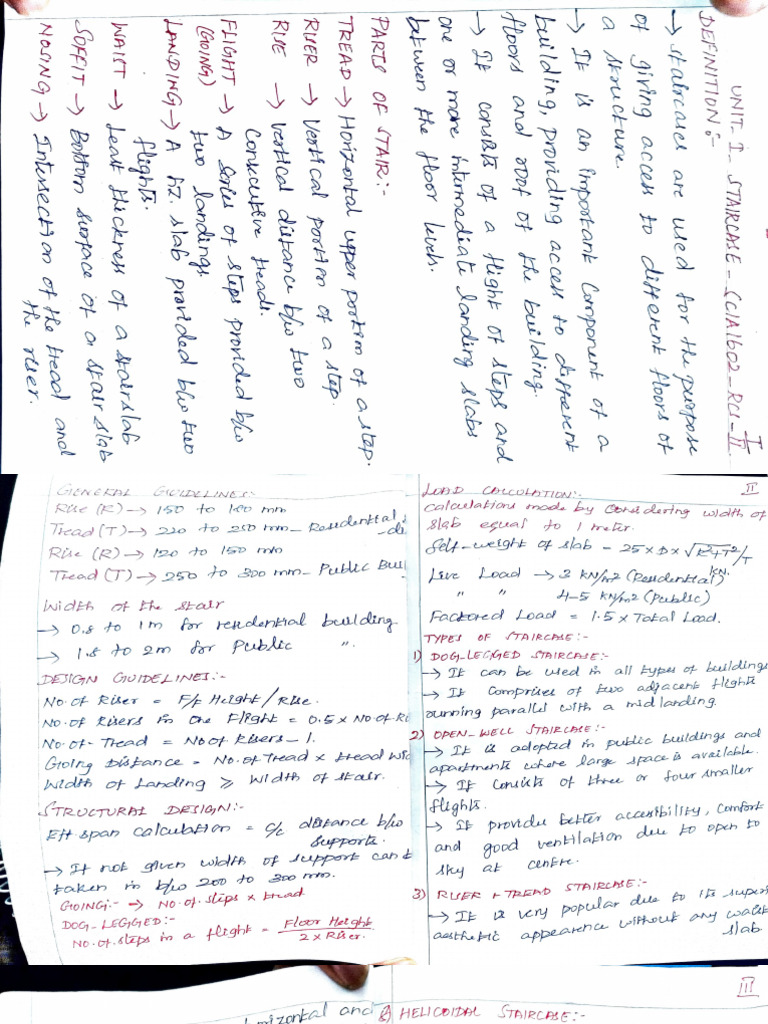 UNIT-I- STAIRCASE - SCIA1602 - RCS-II
I
DEFINITION:-
→ staircases are used for the purpose
of giving access to different floors of
a structure.
→ It is an important component of a
building, providing access to different
floors and roof of the building.
→ It consists of a flight of steps and
one or more intermediate landing slabs
between the floor levels.
PARTS OF STAIR:-
TREAD → Horizontal upper portion of a step.
RISER → Vertical portion of a step.
RISE → Vertical distance b/w two
consecutive treads.
FLIGHT → A series of steps provided b/w
(GOING) two landings.
LANDING → A hz slab provided b/w two
flights.
WAIST → Least thickness of a stair slab
SOFFIT → Bottom surface of a stair slab
NOSING → Intersection of the tread and
the riser.
GENERAL GUIDELINES:-
Rise (R) → 150 to 180 mm
Tread (T) → 220 to 250 mm - Residential
Rise (R) → 120 to 150 mm
Tread (T) → 250 to 300 mm - Public Buil
Width of the stair
→ 0.8 to 1m for residential building
→ 1.8 to 2m for Public "
DESIGN GUIDELINES:-
No. of Riser = F/F Height / Rise.
No. of Risers in one Flight = 0.5 × No of Ri
No-of- Tread = No of Risers - 1.
Going Distance = No. of Tread × tread Wid
Width of Landing ≥ Width of Stair.
STRUCTURAL DESIGN:-
Eff span calculation = c/c distance b/w
supports.
→ If not given width of support can b
taken in b/w 200 to 300 mm.
GOING:- → No. of steps × tread
DOG-LEGGED:-
No. of steps in a flight = Floor Height / 2 × Riser.
II
LOAD CALCULATION:-
calculations made by considering width of
slab equal to 1 meter.
Self-weight of slab - 25 × D × √R²+T²/T
Live Load → 3 kN/m2 (Residential) kN.
" " 4-5 kN/m2 (Public)
Factored Load = 1.5 × Total Load.
TYPES OF STAIRCASE:-
1) DOG-LEGGED STAIRCASE:-
→ It can be used in all types of buildings
→ It comprises of two adjacent flights
running parallel with a midlanding.
2) OPEN-WELL STAIRCASE:-
→ It is adopted in public buildings and
apartments where large space is available.
→ It consists of three or four smaller
flights.
→ It provides better accesibility, comfort
and good ventilation due to open to
sky at centre.
3) RISER + TREAD STAIRCASE:-
→ It is very popular due to its superi
aesthetic appearence without any waist
slab.
III
horizontal and
8) HELICOIDAL STAIRCASE:-